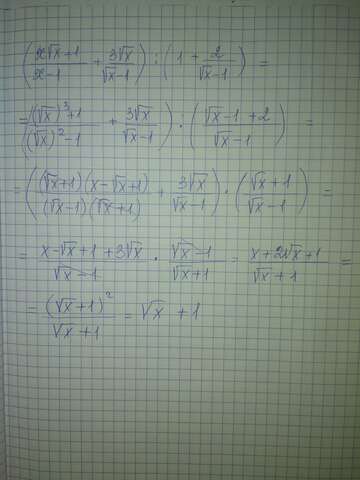 ((x√x+1)/(x-1) + 3√x/(√x-1)) : (1 + 2/(√x-1)) =
= (((√x)³+1)/((√x)²-1) + 3√x/(√x-1)) : ((√x-1+2)/(√x-1)) =
= (((√x+1)(x-√x+1))/((√x-1)(√x+1)) + 3√x/(√x-1)) : ((√x+1)/(√x-1)) =
= (x-√x+1+3√x)/(√x-1) · (√x-1)/(√x+1) = (x+2√x+1)/(√x+1) =
= (√x+1)²/(√x+1) = √x + 1